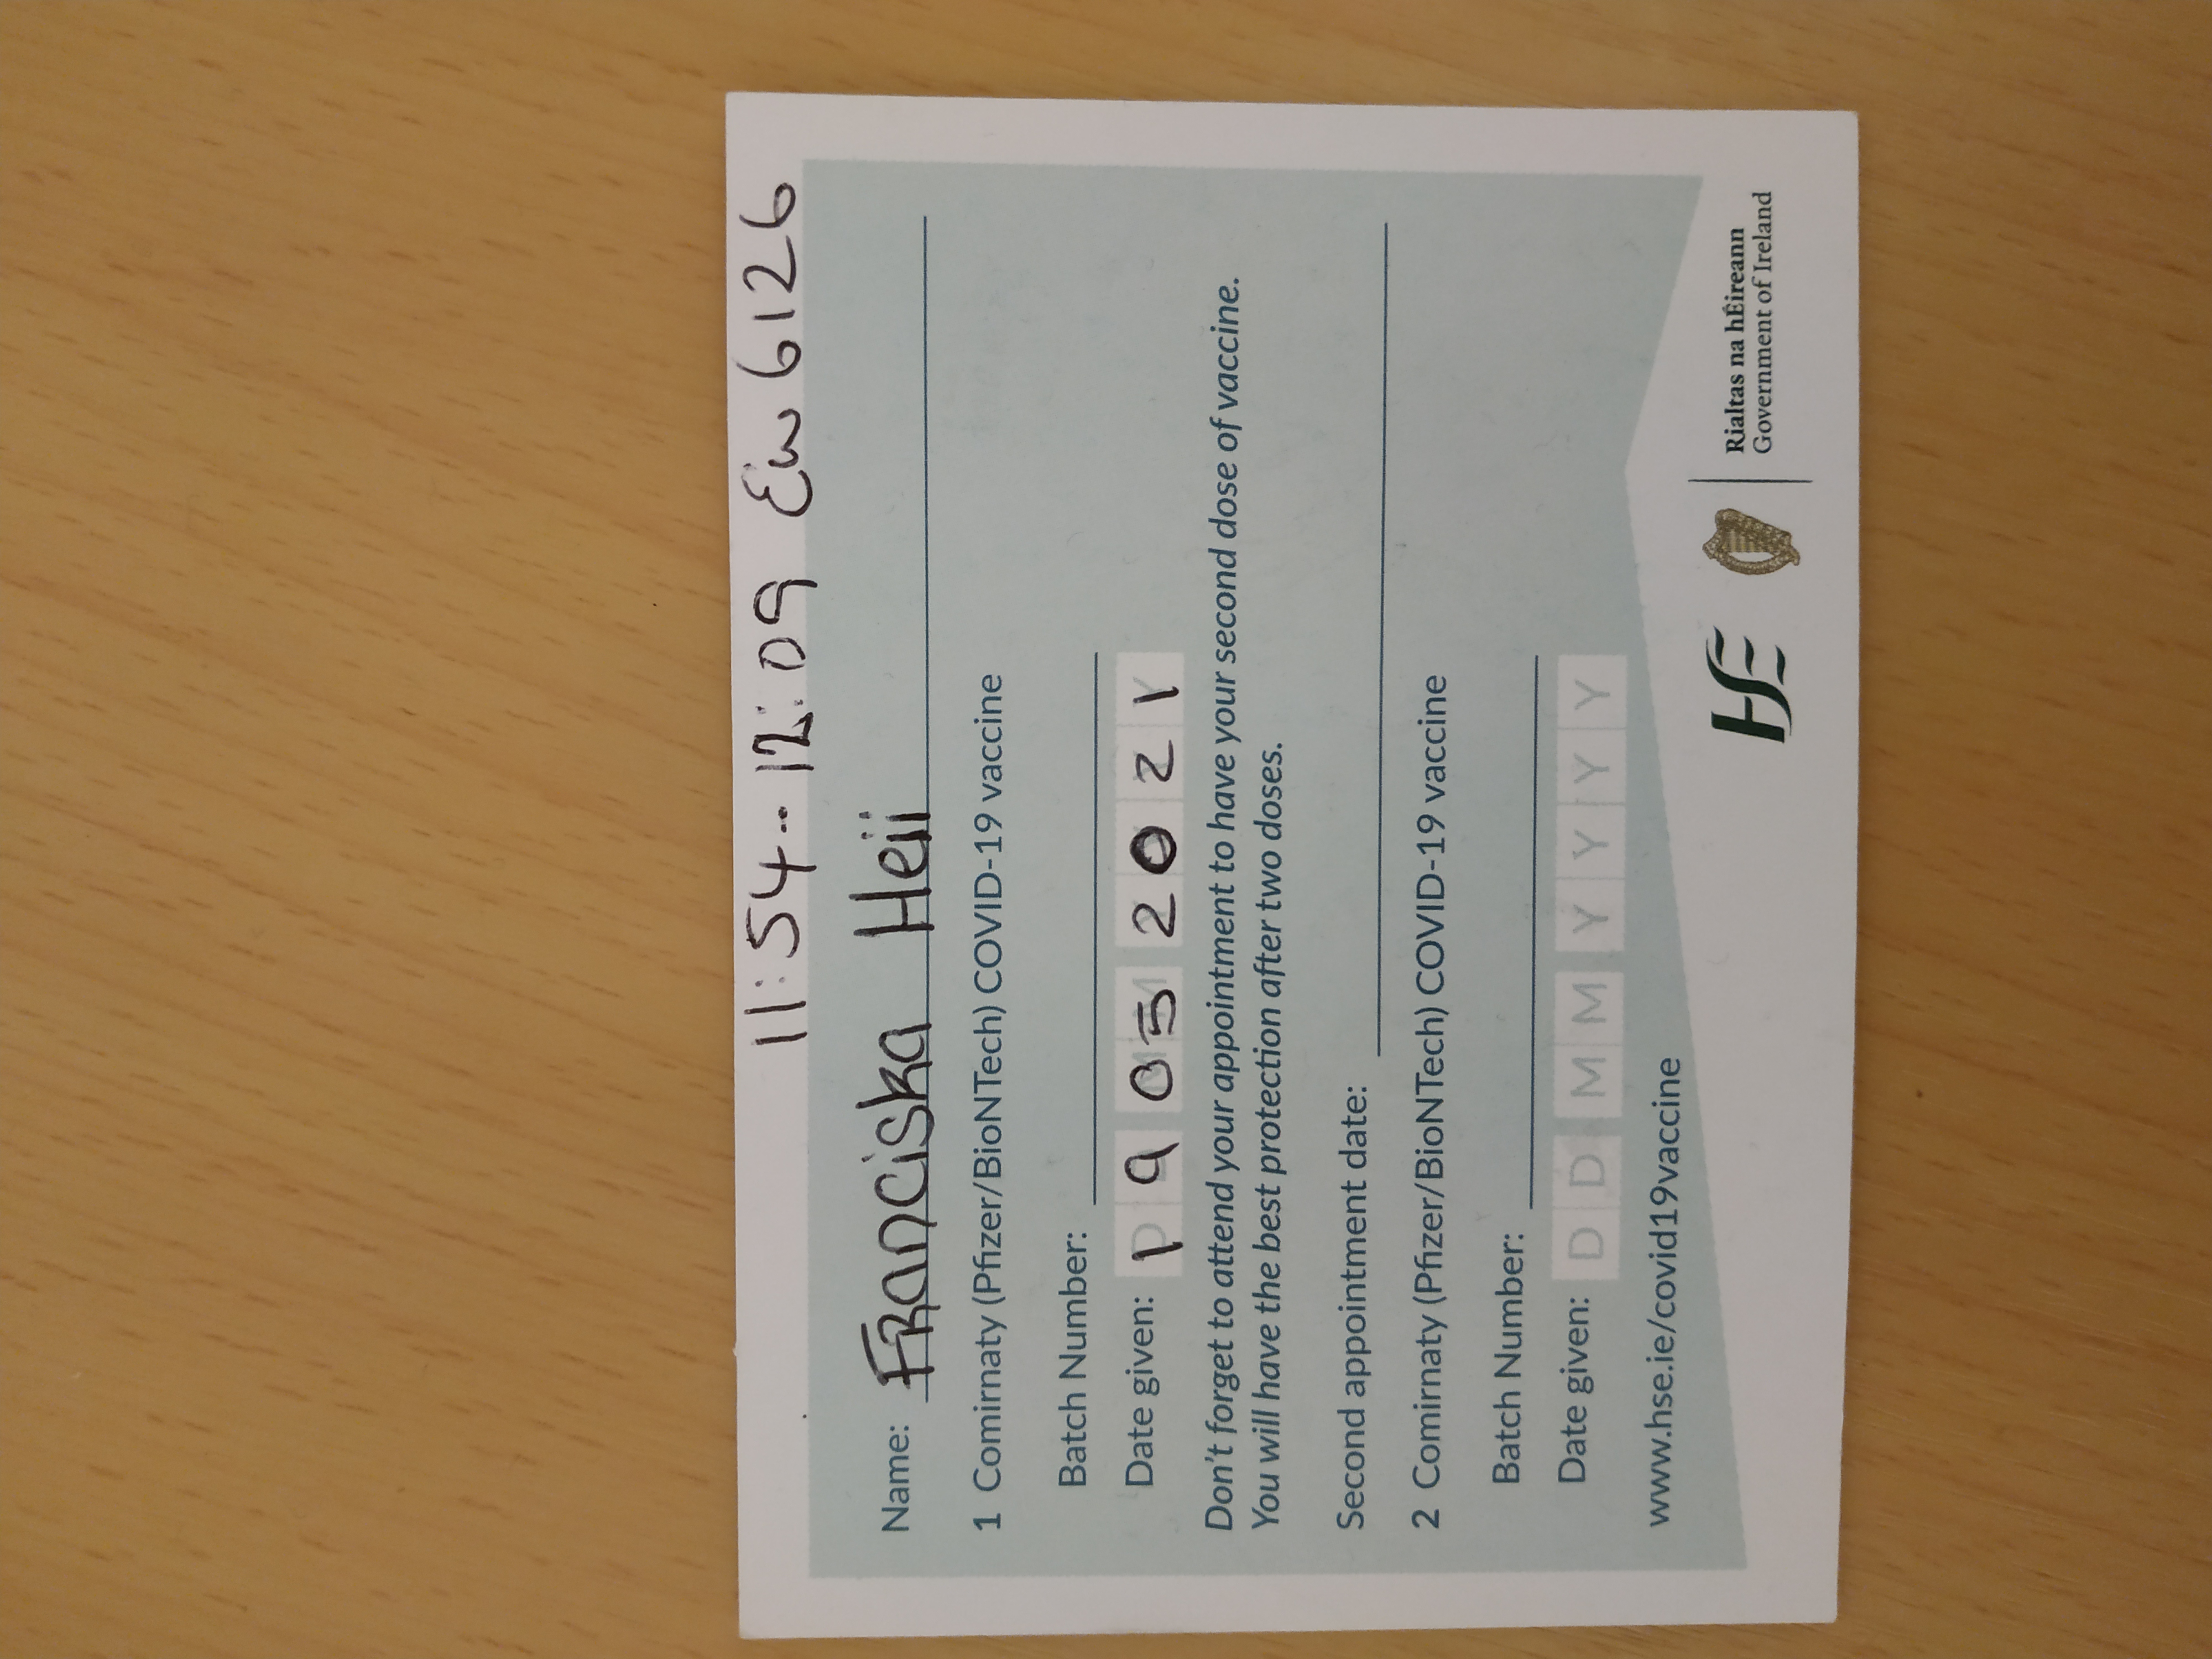 11:54-- 12:09 Ew 6126
Name: Franciska Heii
1 Comirnaty (Pfizer/BioNTech) COVID-19 vaccine
Batch Number:
Date given: 1 9 0 5 2 0 2 1
Don't forget to attend your appointment to have your second dose of vaccine.
You will have the best protection after two doses.
Second appointment date:
2 Comirnaty (Pfizer/BioNTech) COVID-19 vaccine
Batch Number:
Date given: D D M M Y Y Y Y
www.hse.ie/covid19vaccine
HSE
Rialtas na hÉireann
Government of Ireland